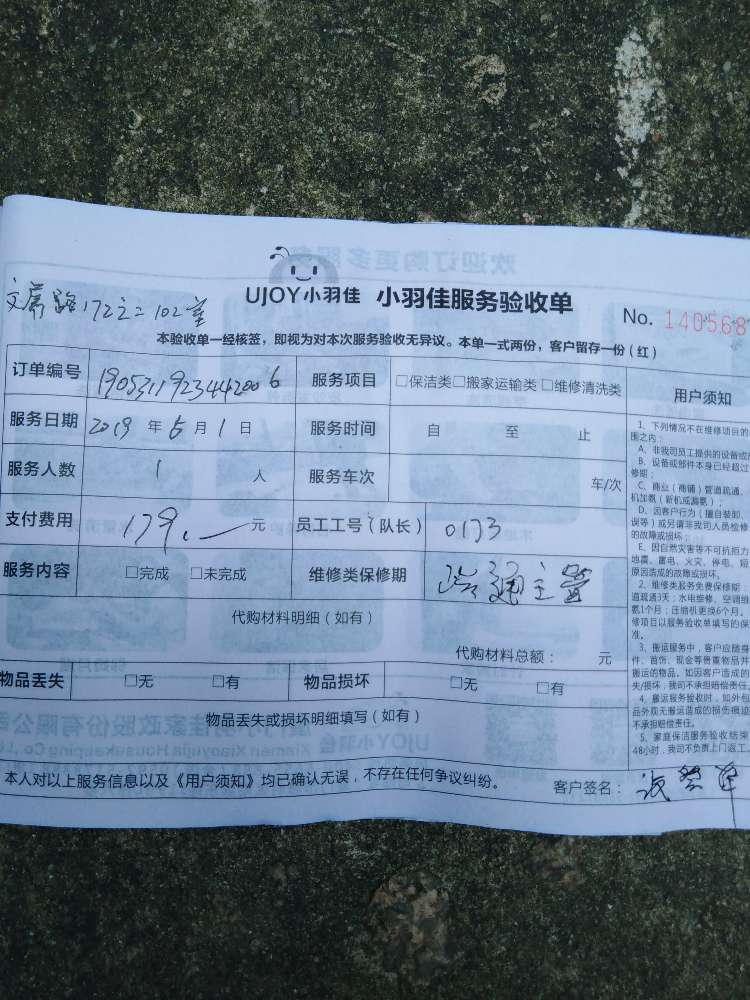 UJOY小羽佳 小羽佳服务验收单
No. 1405687
172之二102室
本验收单一经核签，即视为对本次服务验收无异议。本单一式两份，客户留存一份（红）
订单编号 服务项目 □保洁类□搬家运输类□维修清洗类
服务日期 2019 年 6 月 1 日 服务时间 自 至 止
服务人数 1 人 服务车次 车/次
支付费用 179.— 元 员工工号（队长） 0173
服务内容 □完成 □未完成 维修类保修期 疏通主管
代购材料明细（如有）
代购材料总额： 元
物品丢失 □无 □有 物品损坏 □无 □有
物品丢失或损坏明细填写（如有）
本人对以上服务信息以及《用户须知》均已确认无误，不存在任何争议纠纷。 客户签名：
用户须知
1、下列情况不在维修项目的
围之内：
A、非我司员工提供的设备或
B、设备或部件本身已经超过
修期；
C、商业（商铺）管道疏通、
机加氨（新机或漏氨）；
D、因客户行为（擅自装卸、
误等）或另请非我司人员检修
的故障或损坏；
E、因自然灾害等不可抗拒力
地震、雷电、火灾、停电、短
原因造成的故障或损坏。
2、维修类服务免费保修期：
道疏通3天；水电维修、空调维
氨1个月；压缩机更换6个月。
修项目以服务验收单填写的保
准。
3、搬运服务中，客户应随身
件、首饰、现金等贵重物品并
搬运的物品。如因客户造成的
失/损坏，我司不承担赔偿责任。
4、搬运服务验收时，如外包
品外观无搬运造成的损伤痕迹
不承担赔偿责任。
5、家庭保洁服务验收结束
48小时，我司不负责上门返工。